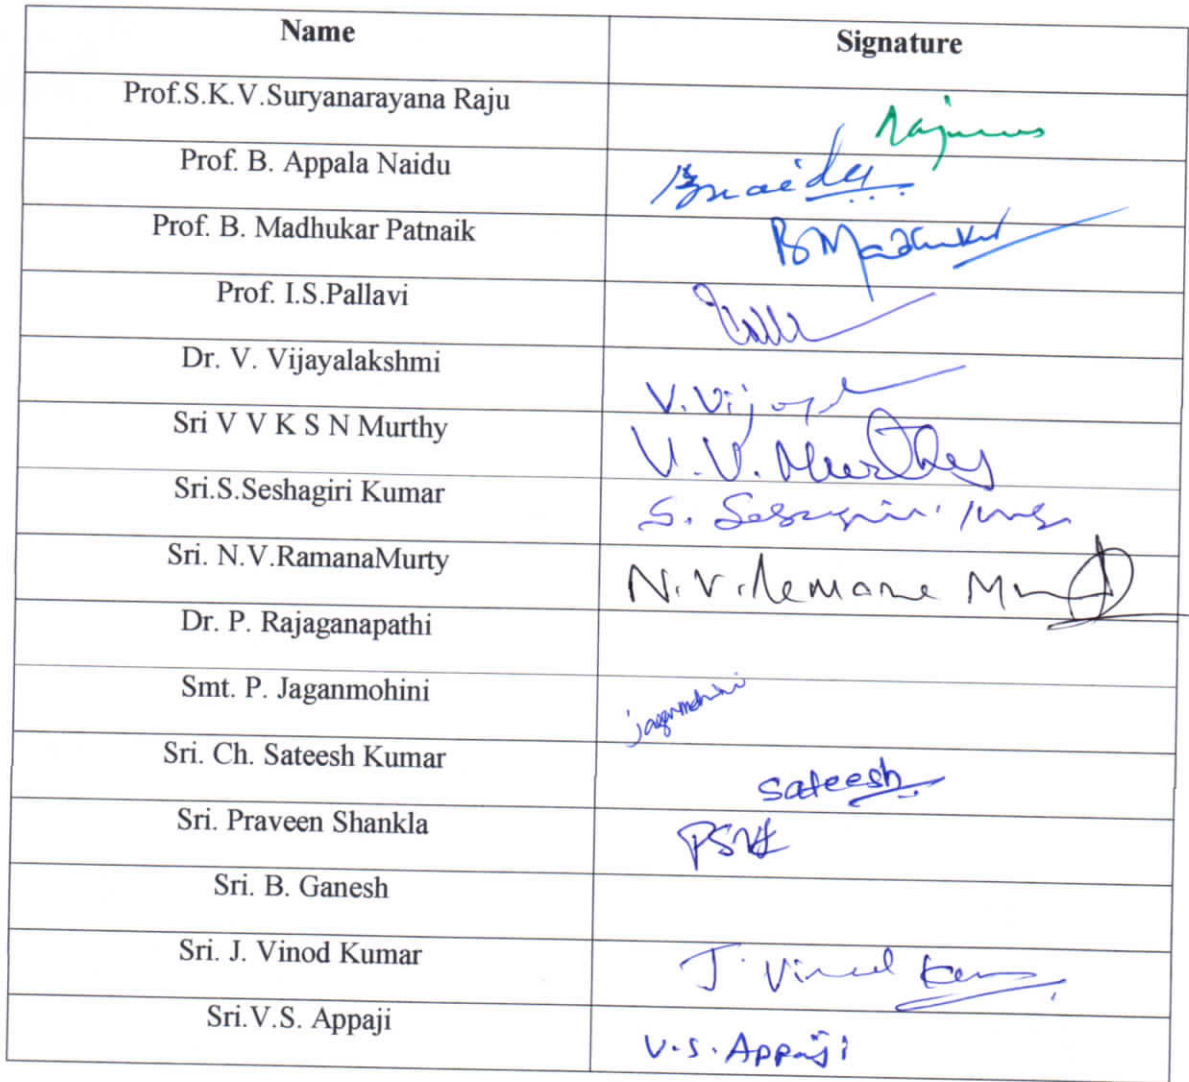 Name Signature
Prof.S.K.V.Suryanarayana Raju
Prof. B. Appala Naidu Bnaidu
Prof. B. Madhukar Patnaik B Madhukar
Prof. I.S.Pallavi
Dr. V. Vijayalakshmi V. Vijaya
Sri V V K S N Murthy V. V. Murthy
Sri.S.Seshagiri Kumar S.
Sri. N.V.RamanaMurty N. V. Ramana
Dr. P. Rajaganapathi
Smt. P. Jaganmohini jaganmohini
Sri. Ch. Sateesh Kumar Sateesh
Sri. Praveen Shankla
Sri. B. Ganesh
Sri. J. Vinod Kumar J. Vinod Kumar
Sri.V.S. Appaji V.S. Appaji